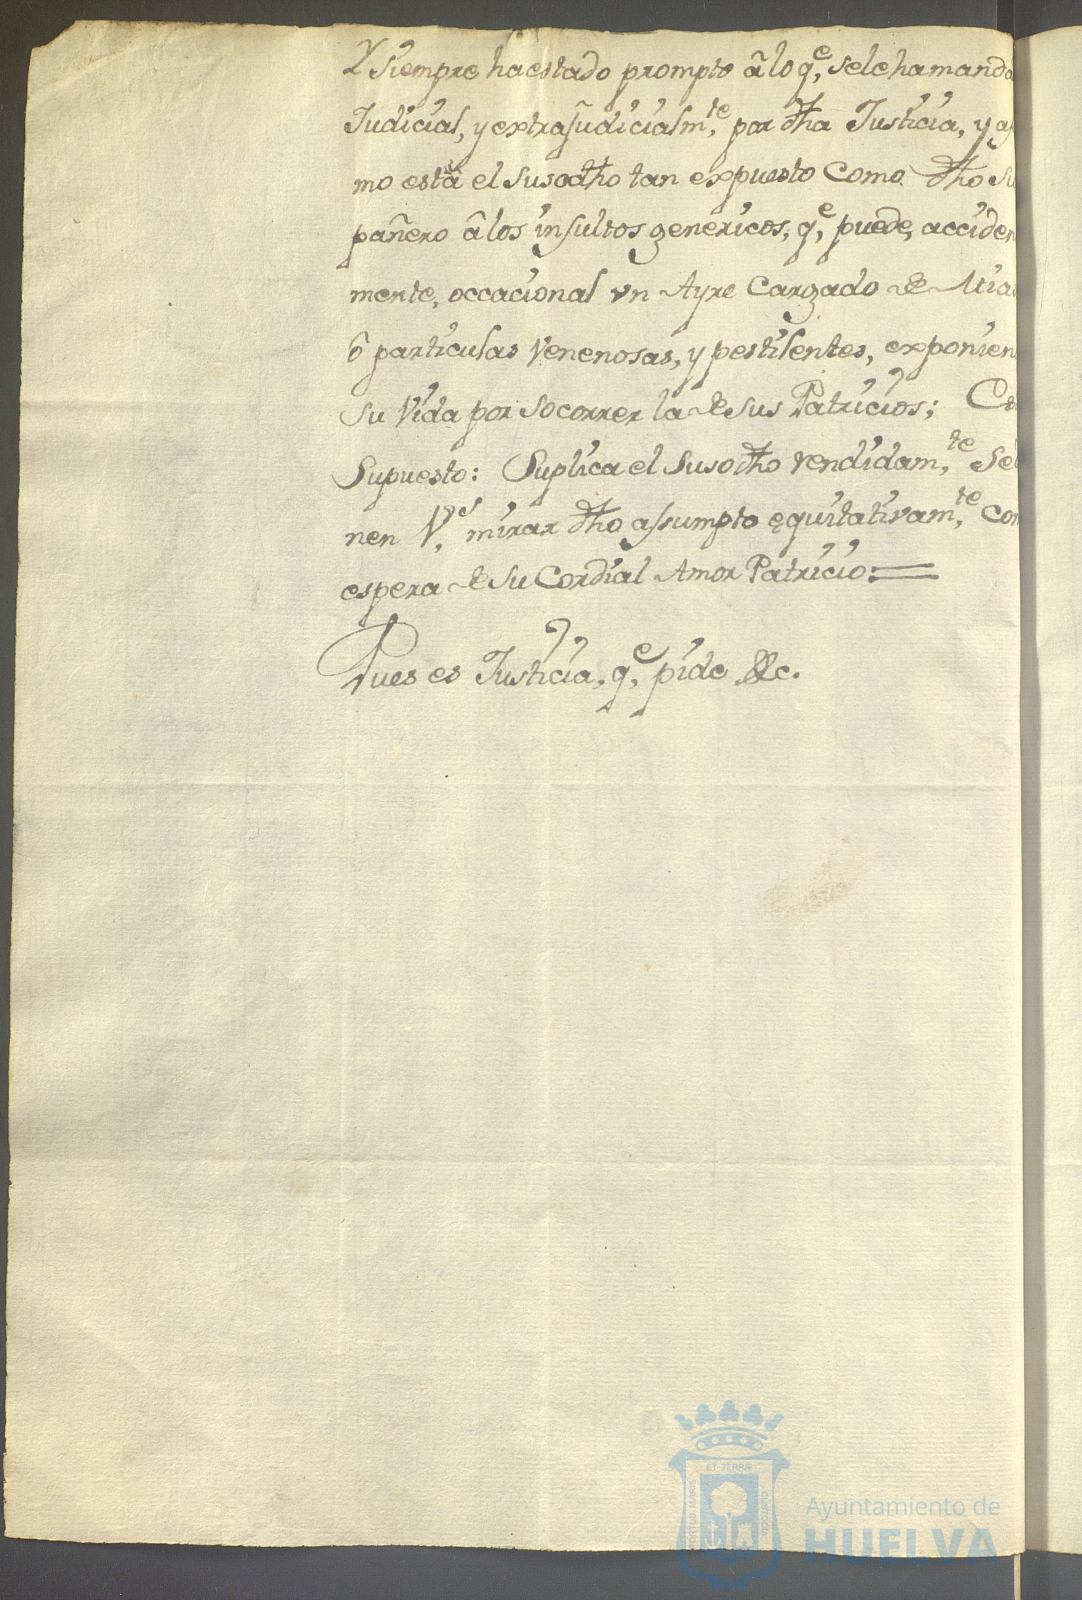 Y siempre ha estado prompto â lo q.e se le ha manda
Judicial, y extrajudicialm.te por dha Justicia, y as
mo està el susodho tan expuesto como dho su
pañero â los insultos genericos, q.e puede, acciden
mente, occacional vn Ayre Cargado de
ô particulas Venenosas, y pestilentes, exponien
su Vida por socorrer la de sus Patricios;
Supuesto: Suplica el susodho rendidam.te Se
nen V.s mirar dho assumpto equitativam.te con
espera de su Cordial Amor Patricio:=
Pues es Justicia, q.e pide &c.
Ayuntamiento de
HUELVA